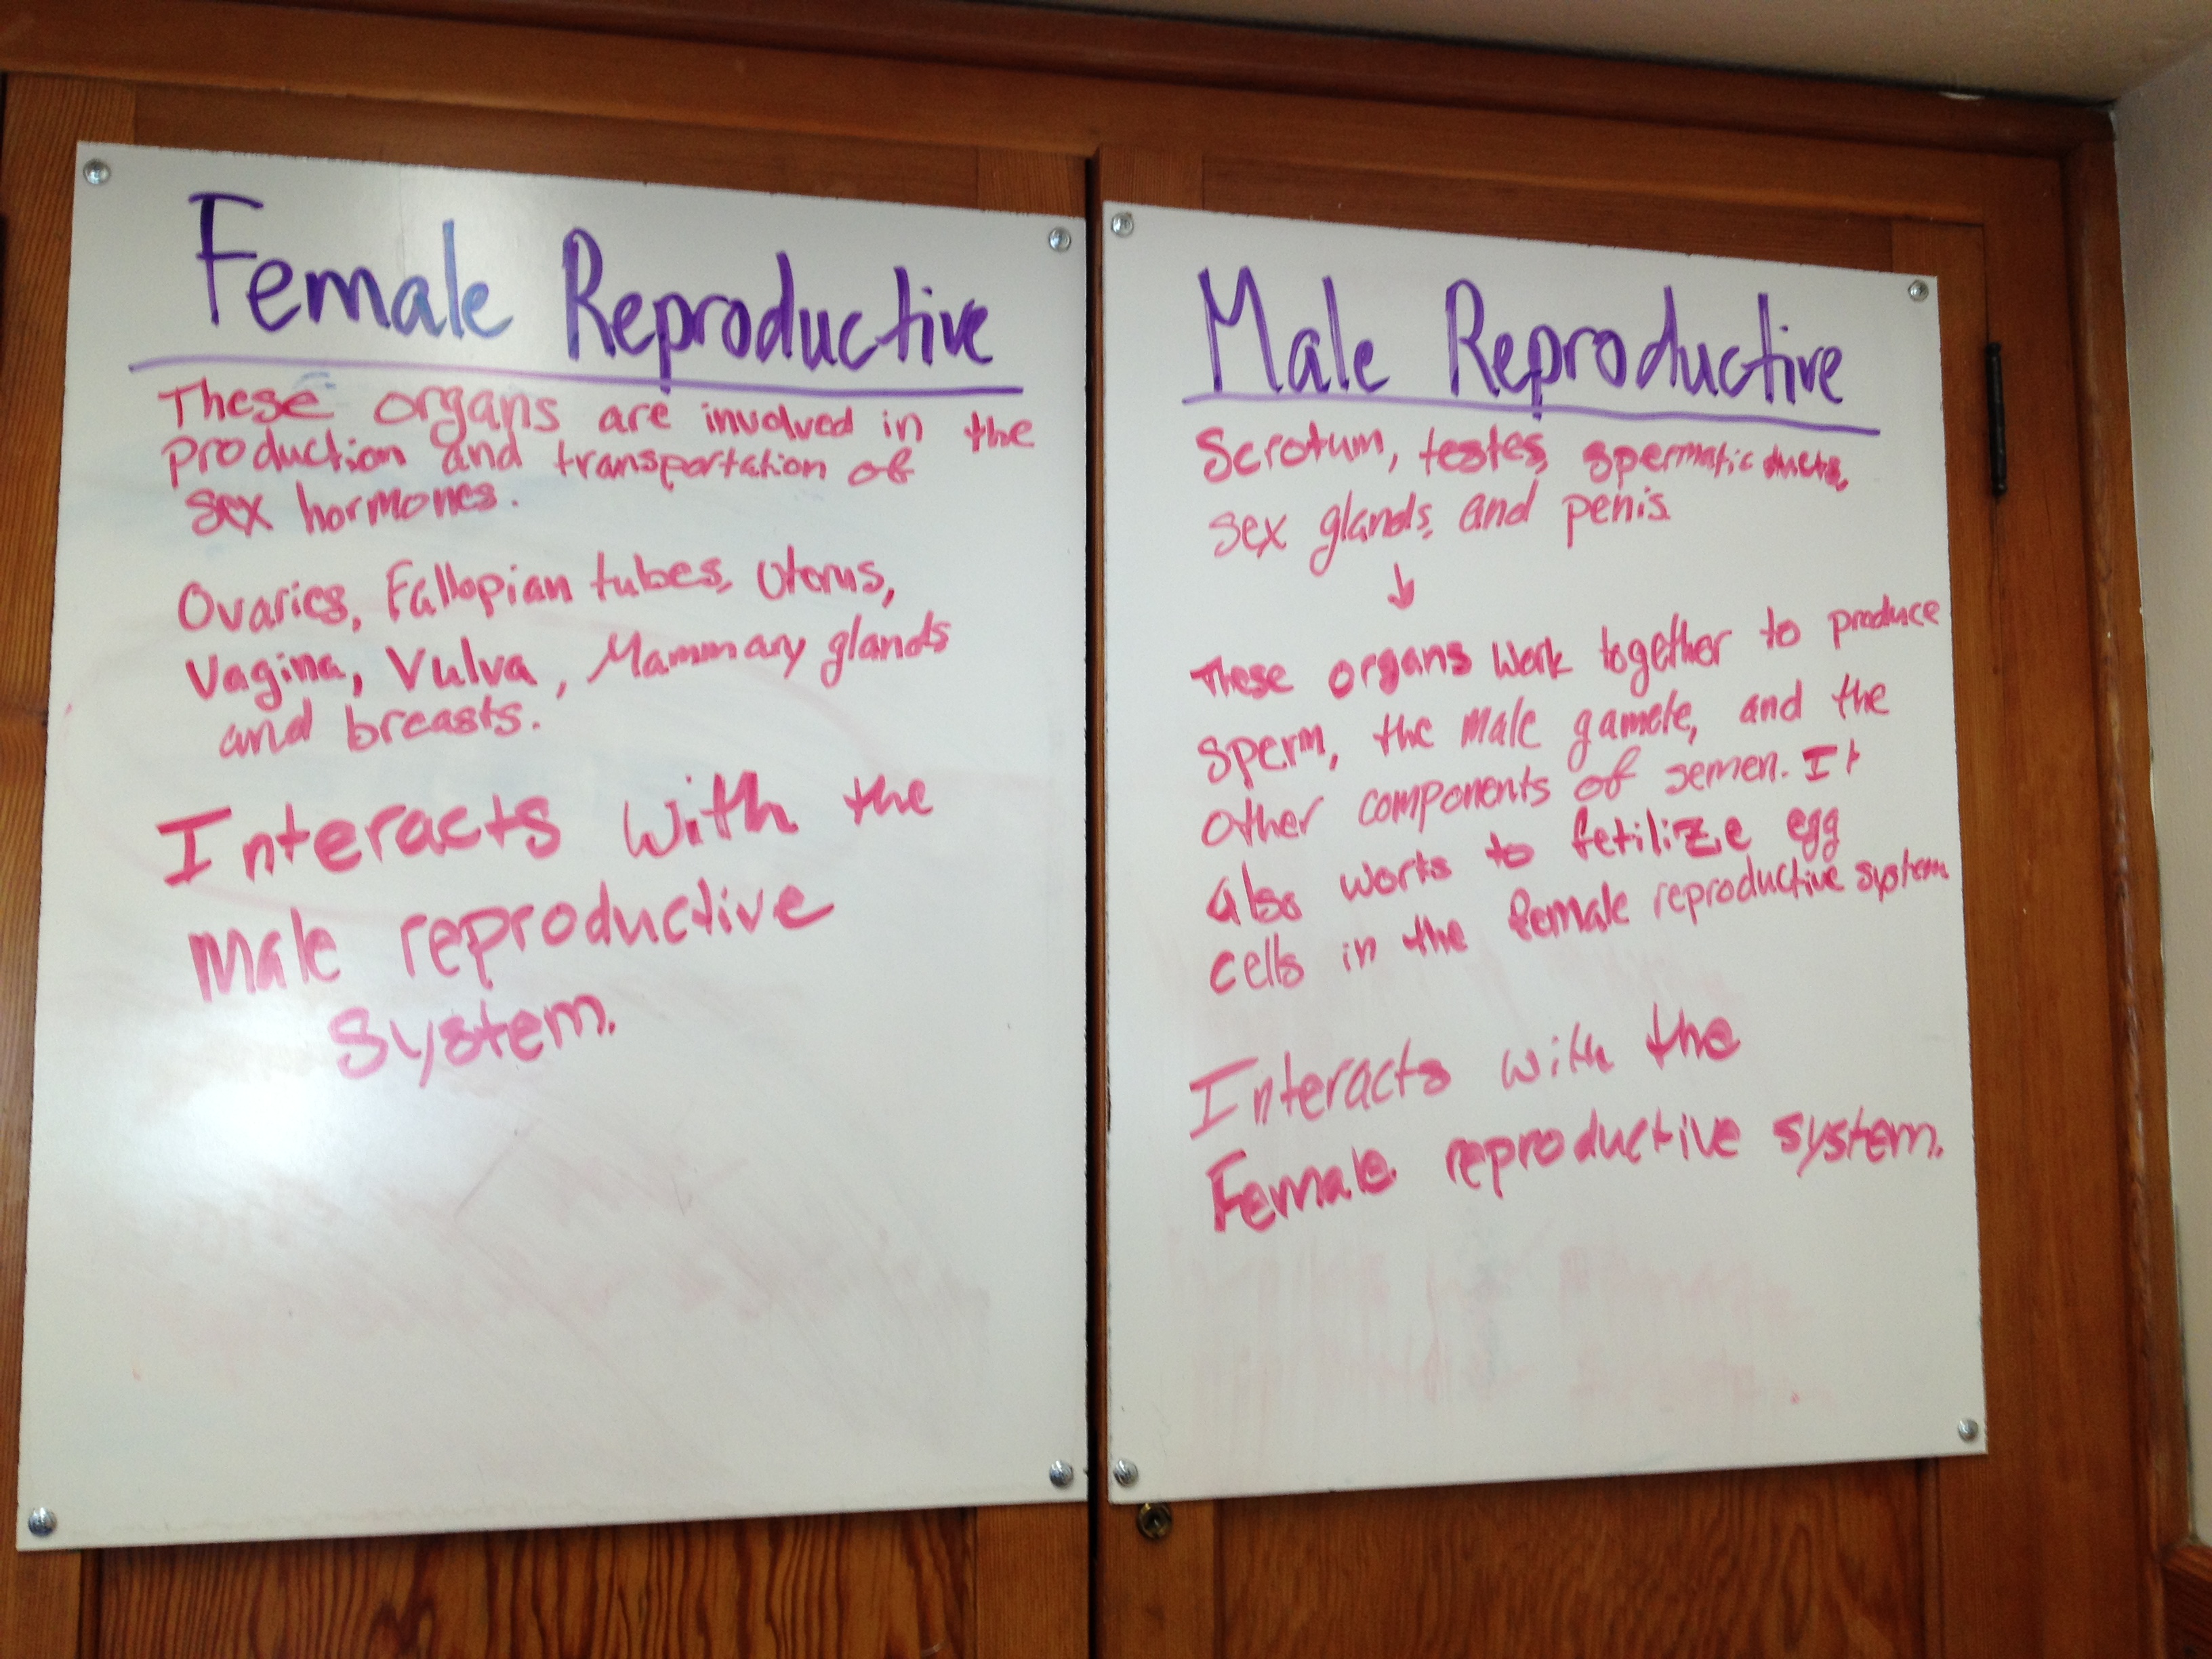 Female Reproductive
These organs are involved in the
production and transportation of
sex hormones.
Ovaries, Fallopian tubes, Uterus,
Vagina, Vulva, Mammary glands
and breasts.
Interacts with the
Male reproductive
system.
Male Reproductive
Scrotum, testes, spermatic ducts,
sex glands, and penis.
↓
These organs work together to produce
sperm, the male gamete, and the
other components of semen. It
also works to fetilize egg
cells in the female reproductive system.
Interacts with the
Female reproductive system.